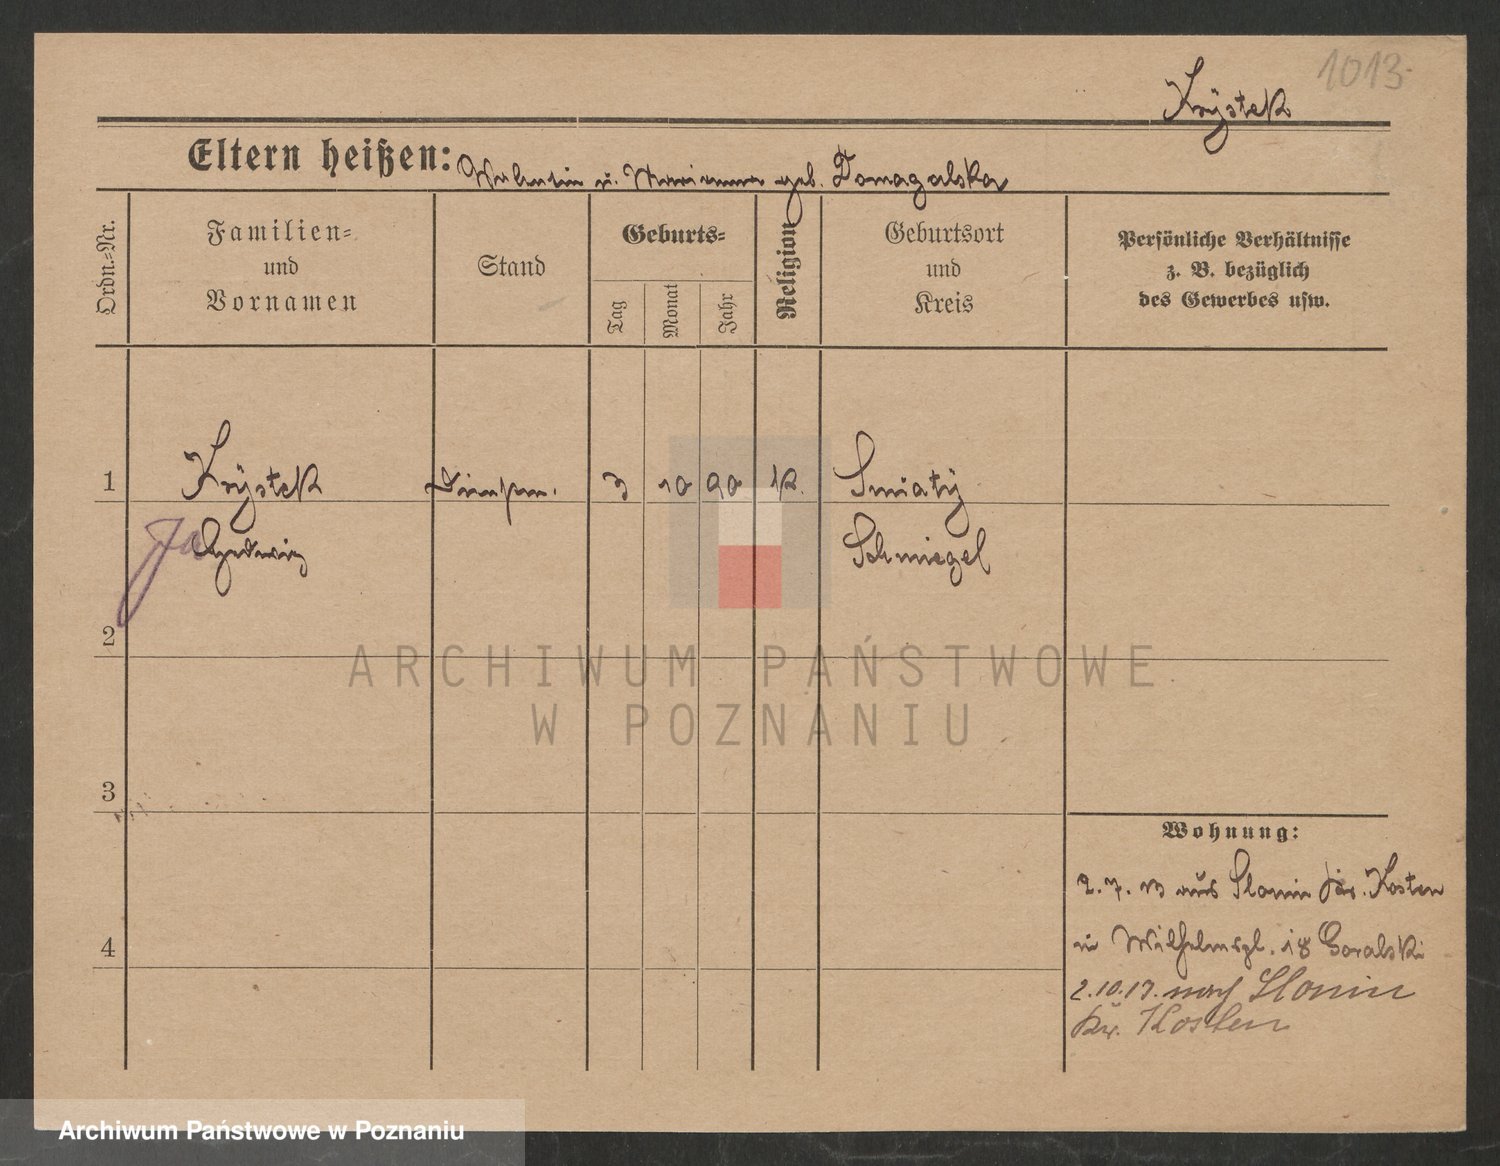 1013
Krÿstek
Eltern heißen: Valentin u. Marianna geb. Domagalska
Ordn.=Nr.
Familien=
und
Vornamen
Stand
Geburts=
Tag
Monat
Jahr
Religion
Geburtsort
und
Kreis
Persönliche Verhältnisse
z. B. bezüglich
des Gewerbes usw.
1 Krÿstek 3 10 90 k. Smiatÿ
Ja Hedwig Schmiegel
2
ARCHIWUM PAŃSTWOWE
W POZNANIU
3
Wohnung:
2.7.13 aus Slonin Kr. Kosten
4
in Wilhelmspl. 18 Goralski
2.10.13. nach Slonin
Kr. Kosten
Archiwum Państwowe w Poznaniu